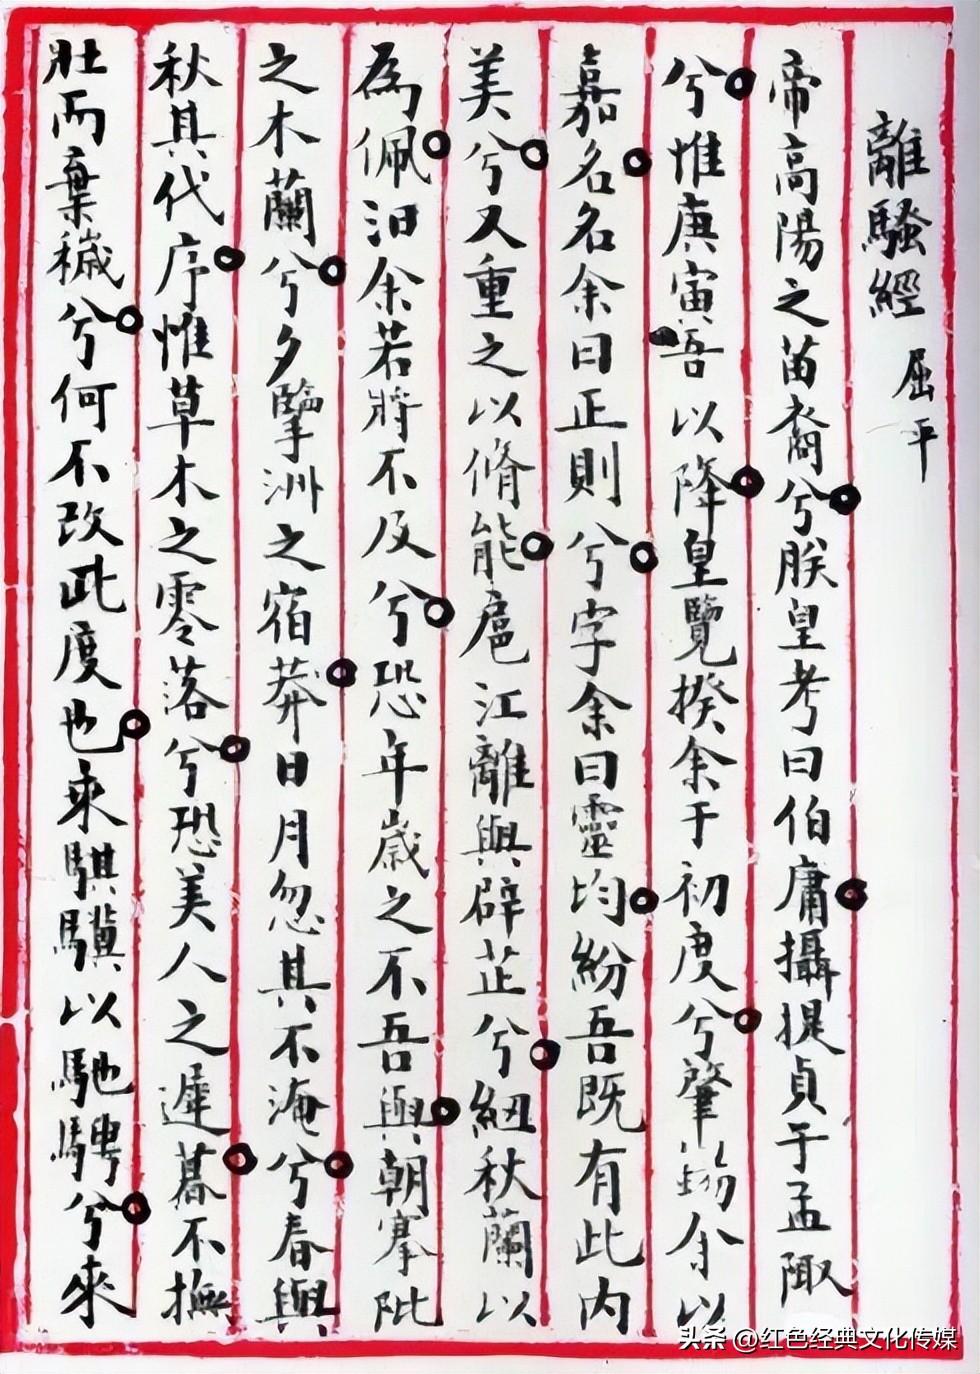 離騷經 屈平
帝高陽之苗裔兮朕皇考曰伯庸攝提貞于孟陬
兮惟庚寅吾以降皇覽揆余于初度兮肇錫余以
嘉名名余曰正則兮字余曰靈均紛吾既有此内
美兮又重之以脩能扈江離與辟芷兮紐秋蘭以
為佩汩余若將不及兮恐年歲之不吾與朝搴阰
之木蘭兮夕擥洲之宿莽日月忽其不淹兮春與
秋其代序惟草木之零落兮恐美人之遲暮不撫
壯而棄穢兮何不改此度也乘騏驥以馳騁兮來
头条 @红色经典文化传媒